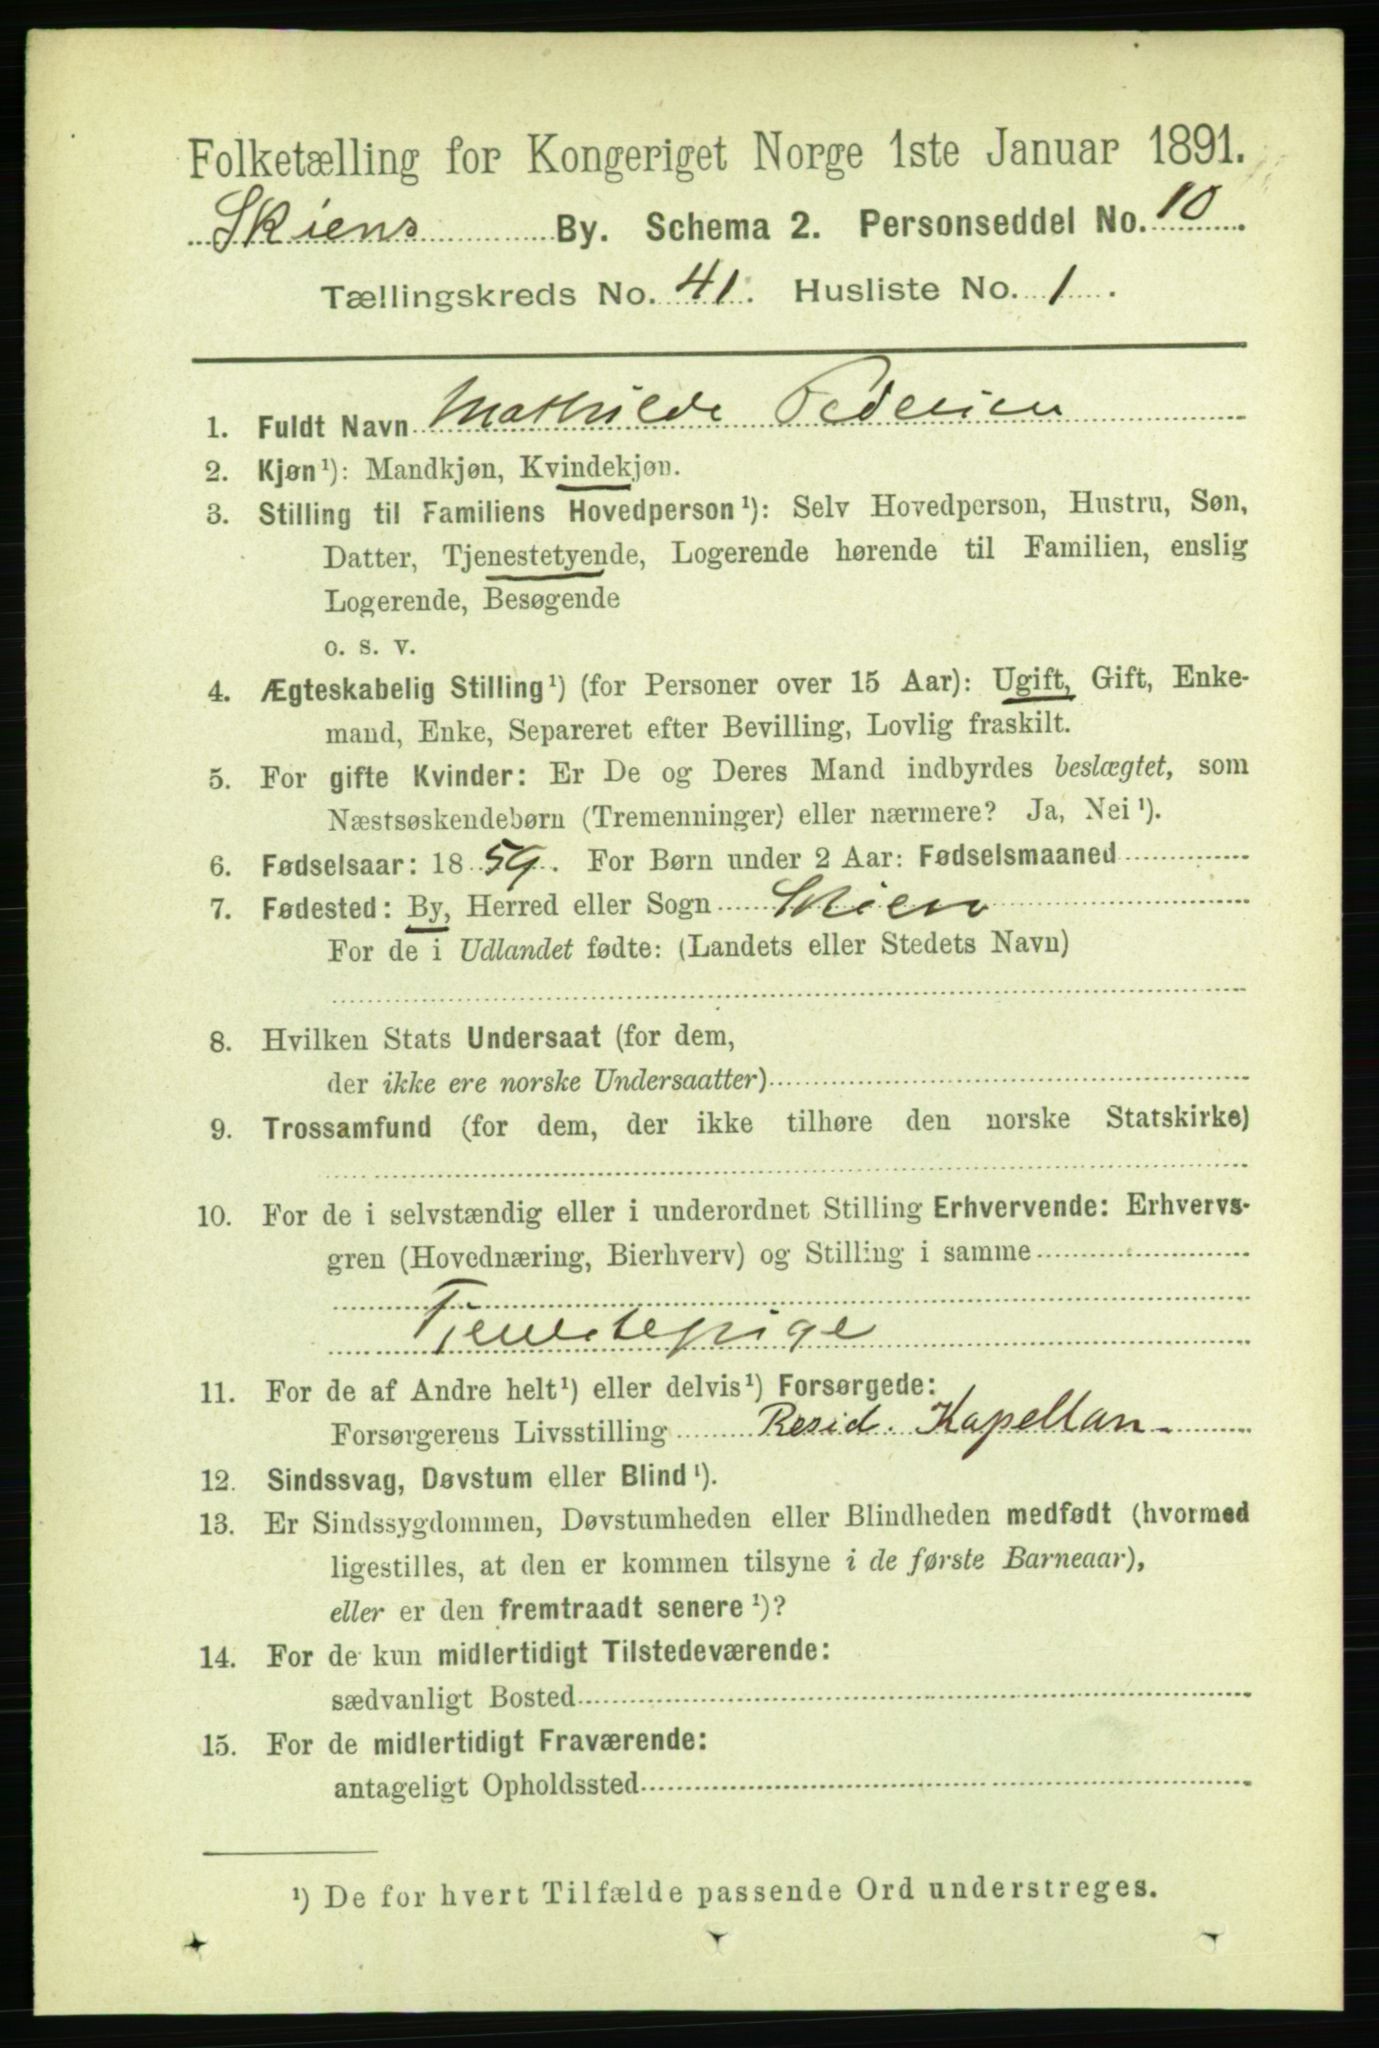 Folketælling for Kongeriget Norge 1ste Januar 1891.
Skiens By. Schema 2. Personseddel No. 10.
Tællingskreds No. 41. Husliste No. 1.
1. Fuldt Navn Mathilde Pedersen
2. Kjøn ¹): Mandkjøn, Kvindekjøn.
3. Stilling til Familiens Hovedperson ¹): Selv Hovedperson, Hustru, Søn,
Datter, Tjenestetyende, Logerende hørende til Familien, enslig
Logerende, Besøgende
o. s. v.
4. Ægteskabelig Stilling ¹) (for Personer over 15 Aar): Ugift, Gift, Enke-
mand, Enke, Separeret efter Bevilling, Lovlig fraskilt.
5. For gifte Kvinder: Er De og Deres Mand indbyrdes beslægtet, som
Næstsøskendebørn (Tremenninger) eller nærmere? Ja, Nei ¹).
6. Fødselsaar: 1859. For Børn under 2 Aar: Fødselsmaaned
7. Fødested: By, Herred eller Sogn Skien
For de i Udlandet fødte: (Landets eller Stedets Navn)
8. Hvilken Stats Undersaat (for dem,
der ikke ere norske Undersaatter)
9. Trossamfund (for dem, der ikke tilhøre den norske Statskirke)
10. For de i selvstændig eller i underordnet Stilling Erhvervende: Erhvervs-
gren (Hovednæring, Bierhverv) og Stilling i samme
Tjenestepige
11. For de af Andre helt ¹) eller delvis ¹) Forsørgede:
Forsørgerens Livsstilling Resid. Kapellan.
12. Sindssvag, Døvstum eller Blind ¹).
13. Er Sindssygdommen, Døvstumheden eller Blindheden medfødt (hvormed
ligestilles, at den er kommen tilsyne i de første Barneaar),
eller er den fremtraadt senere ¹)?
14. For de kun midlertidigt Tilstedeværende:
sædvanligt Bosted
15. For de midlertidigt Fraværende:
antageligt Opholdssted
¹) De for hvert Tilfælde passende Ord understreges.